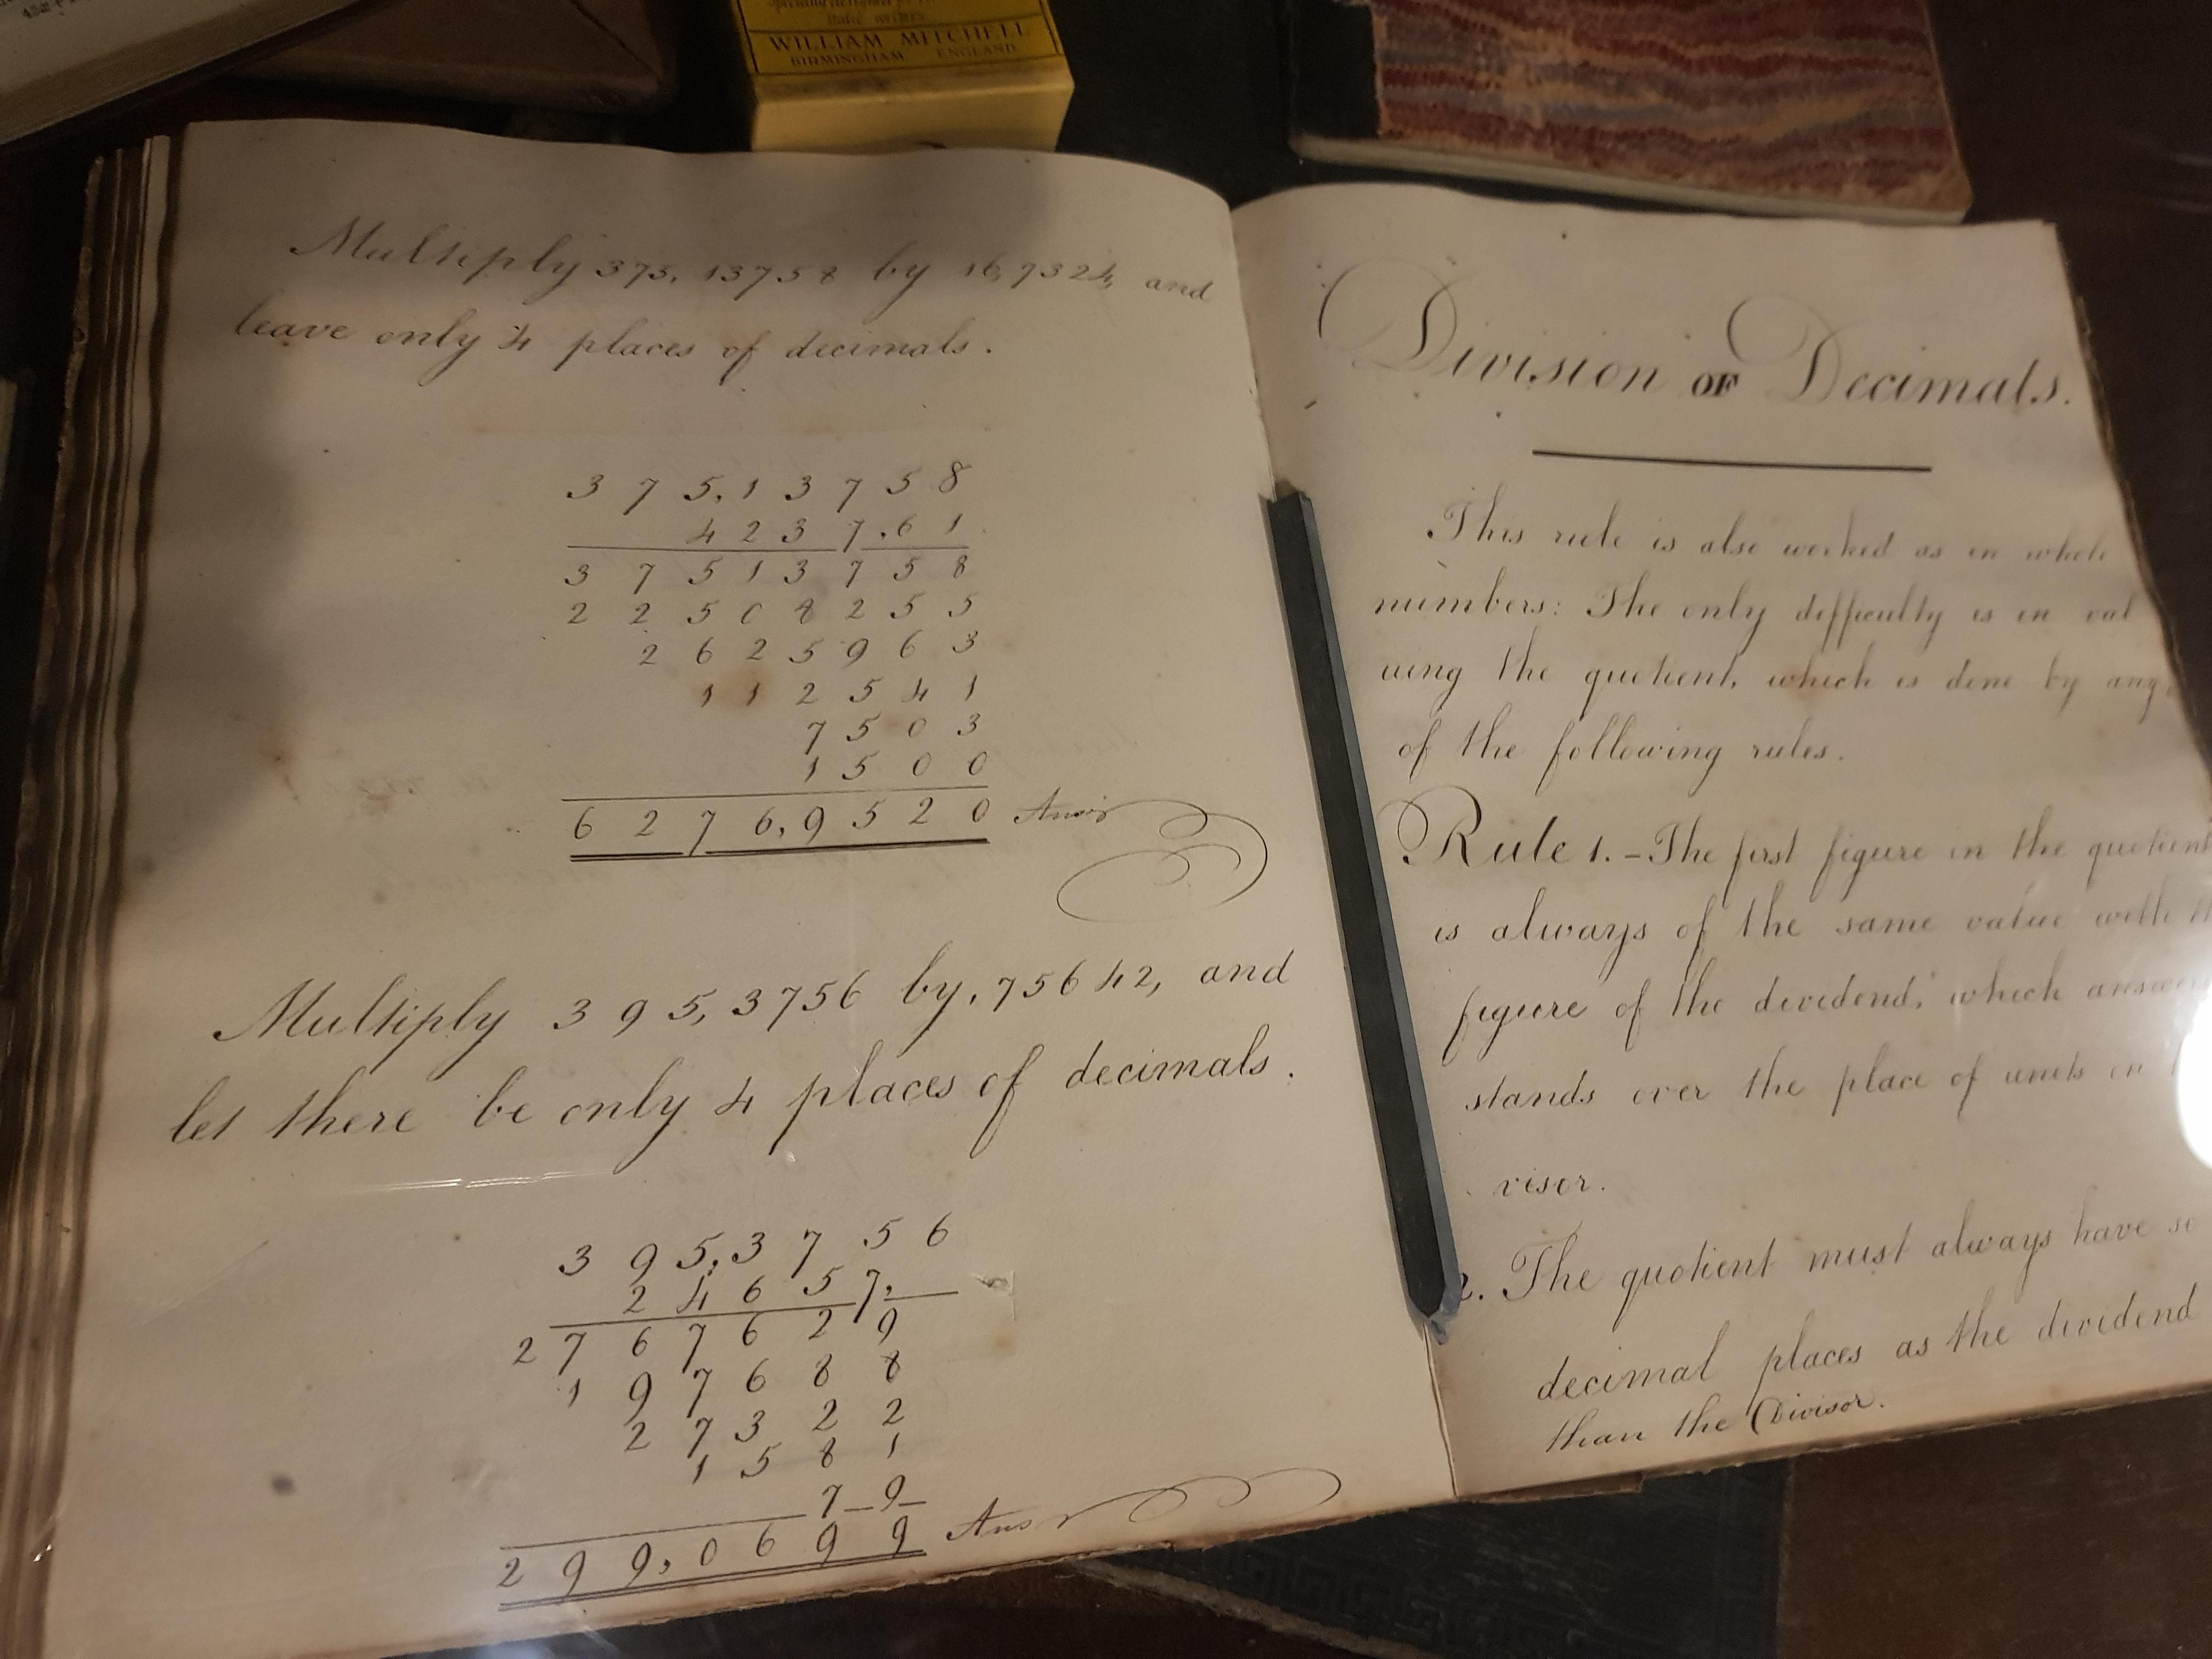 Italic writers
WILLIAM MITCHELL
BIRMINGHAM ENGLAND
Multiply 375, 13758 by 16,7324, and
leave only 4 places of decimals.
3 7 5, 1 3 7 5 8
4 2 3 7 . 6 1
3 7 5 1 3 7 5 8
2 2 5 0 8 2 5 5
2 6 2 5 9 6 3
1 1 2 5 4 1
7 5 0 3
1 5 0 0
6 2 7 6, 9 5 2 0 Ansr
Multiply 3 9 5, 3756 by, 75642, and
let there be only 4 places of decimals.
3 9 5, 3 7 5 6
2 4 6 5 7,
2 7 6 7 6 2 9
1 9 7 6 8 8
2 7 3 2 2
1 5 8 1
7 9
2 9 9, 0 6 9 9 Ansr
Division OF Decimals.
This rule is also worked as in whole
numbers: The only difficulty is in val
uing the quotient, which is done by any
of the following rules.
Rule 1. - The first figure in the quotient
is always of the same value with
figure of the dividend, which answers
stands over the place of units in
visor.
2. The quotient must always have
decimal places as the dividend
than the Divisor.